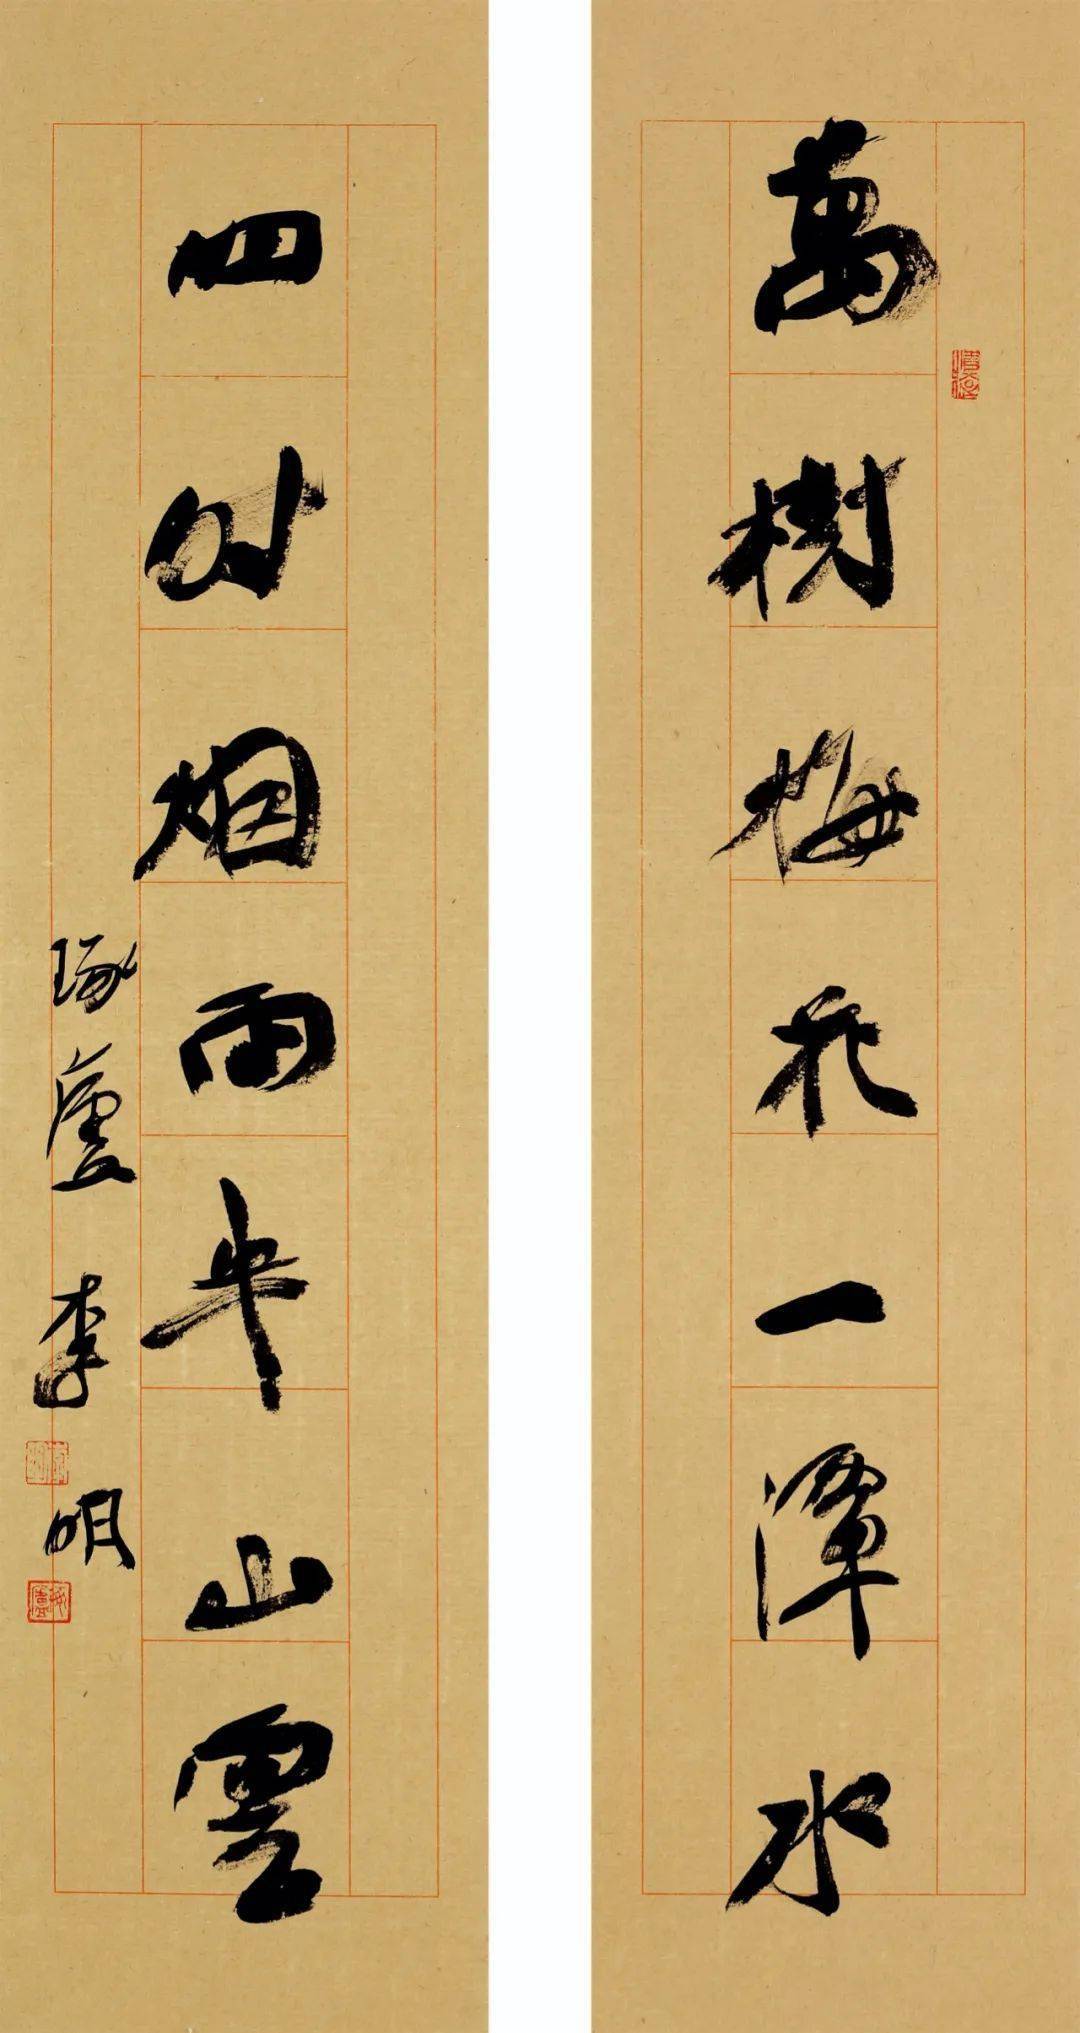 萬樹梅花一潭水
四時烟雨半山雲
琢廬李明